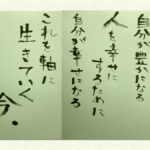 自分が豊かになる
人を幸せに
するために
自分が幸せになる
これを軸に
生きていく
今.